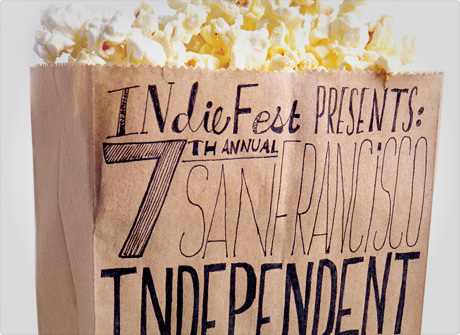 INdieFest PRESENTS:
7TH ANNUAL
SANFRANCiSCO
INDEPENDENT